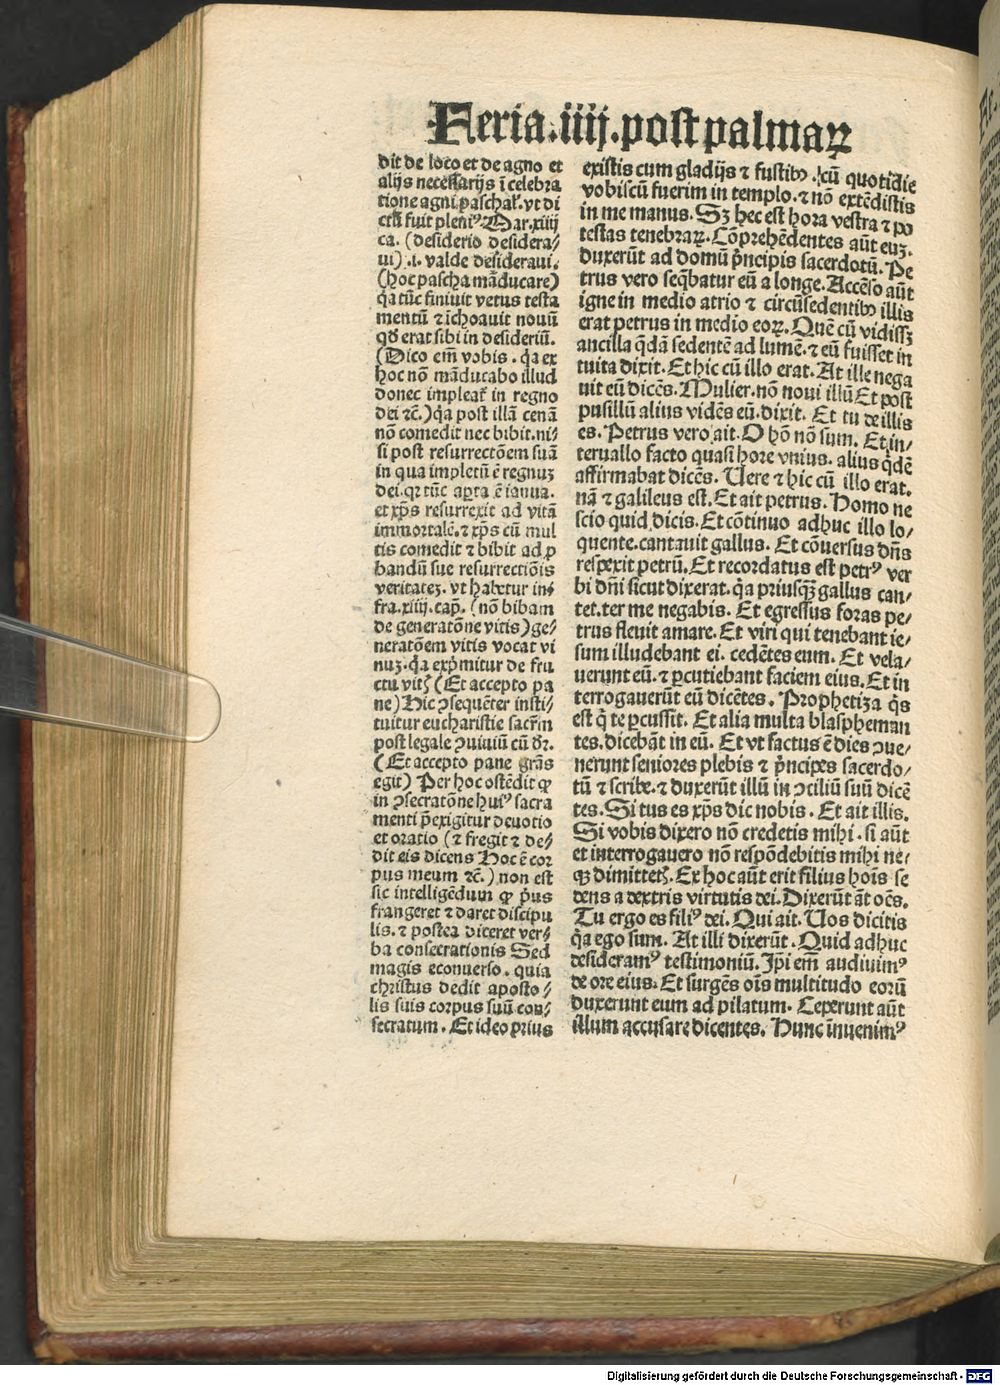 Feria.iiij.post palmaꝝ
dit de loco et de agno et
alijs necessarijs ī celebra
tione agni paschal̕. vt di
ctū fuit pleni⁹. Mar. xiiij
ca. (desiderio desidera⸗
ui) .i. valde desideraui.
(hoc pascha māducare)
q̄a tūc finiuit vetus testa
mentū ⁊ īchoauit nouū
qd̄ erat sibi in desideriū.
(Dico em̄ vobis . q̄a ex
hoc nō māducabo illud
donec impleat̕ in regno
dei ⁊c̄.) q̄a post illā cenā
nō comedit nec bibit. ni⸗
si post resurrectōem suā
in qua impletū ē regnuꝫ
dei. qꝛ tūc aꝑta ē ianua.
et xp̄s resurrexit ad vitā
immortalē. ⁊ xp̄s cū mul
tis comedit ⁊ bibit ad ꝓ
bandū sue resurrectiōis
veritateꝫ. vt habetur in⸗
fra. xiiij. cap̄. (nō bibam
de generatōne vitis) ge⸗
neratōem vitis vocat vi
nuꝫ. q̄a exp̄mitur de fru
ctu vitꝭ (Et accepto pa
ne) Hic ꝯsequēter insti⸗
tuitur eucharistie sacr̄m
post legale ꝯuiuiū cū dr̄.
(Et accepto pane grās
egit) Per hoc ostēdit ꝙ
in ꝯsecratōne hui⁹ sacra
menti p̄exigitur deuotio
et oratio (⁊ fregit ⁊ de⸗
dit eis dicens Hoc ē cor
pus meum ⁊c̄.) non est
sic intelligēdum ꝙ p̄us
frangeret ⁊ daret discipu
lis. ⁊ postea diceret ver⸗
ba consecrationis Sed
magis econuerso . quia
christus dedit aposto⸗
lis suis corpus suū con⸗
secratum . Et ideo prius
existis cum gladijs ⁊ fustibꝰ . cū quotidie
vobiscū fuerim in templo. ⁊ nō extēdistis
in me manus. Sꝫ hec est hora vestra ⁊ po
testas tenebraꝝ. Cōprehēdentes aūt euꝫ.
duxerūt ad domū p̄ncipis sacerdotū. Pe
trus vero seq̄batur eū a longe. Accēso aūt
igne in medio atrio ⁊ circūsedentibꝰ illis
erat petrus in medio eoꝝ. Quē cū vidissꝫ
ancilla q̄dā sedentē ad lumē. ⁊ eū fuisset in
tuita dixit. Et hic cū illo erat. At ille nega
uit eū dicēs. Mulier. nō noui illū Et post
pusillū alius vidēs eū. dixit. Et tu de illis
es. Petrus vero ait. O hō nō sum. Et in⸗
teruallo facto quasi hore vnius. alius q̄dē
affirmabat dicēs. Vere ⁊ hic cū illo erat.
nā ⁊ galileus est. Et ait petrus. Homo ne
scio quid dicis. Et cōtinuo adhuc illo lo⸗
quente. cantauit gallus. Et cōuersus dn̄s
respexit petrū. Et recordatus est petr⁹ ver
bi dn̄i sicut dixerat. q̄a priusq̄ꝫ gallus can⸗
tet. ter me negabis. Et egressus foras pe⸗
trus fleuit amare. Et viri qui tenebant ie⸗
sum illudebant ei. cedētes eum. Et vela⸗
uerunt eū. ⁊ ꝑcutiebant faciem eius. Et in
terrogauerūt eū dicētes. Prophetiza q̄s
est q̄ te ꝑcussit. Et alia multa blaspheman
tes. dicebāt in eū. Et vt factus ē dies ꝯue⸗
nerunt seniores plebis ⁊ p̄ncipes sacerdo⸗
tū ⁊ scribe. ⁊ duxerūt illū in ꝯciliū suū dicē
tes. Si tu es xp̄s dic nobis . Et ait illis.
Si vobis dixero nō credetis mihi . si aūt
et interrogauero nō respōdebitis mihi ne⸗
qꝫ dimittetꝭ. Ex hoc aūt erit filius hoīs se
dens a dextris virtutis dei. Dixerūt āt oēs.
Tu ergo es fili⁹ dei. Qui ait. Vos dicitis
q̄a ego sum. At illi dixerūt . Quid adhuc
desideram⁹ testimoniū. Ip̄i em̄ audiuim⁹
de ore eius. Et surgēs oīs multitudo eorū
duxerunt eum ad pilatum. Ceperunt aūt
illum accusare dicentes. Hunc īnuenim⁹
Digitalisierung gefördert durch die Deutsche Forschungsgemeinschaft - DFG